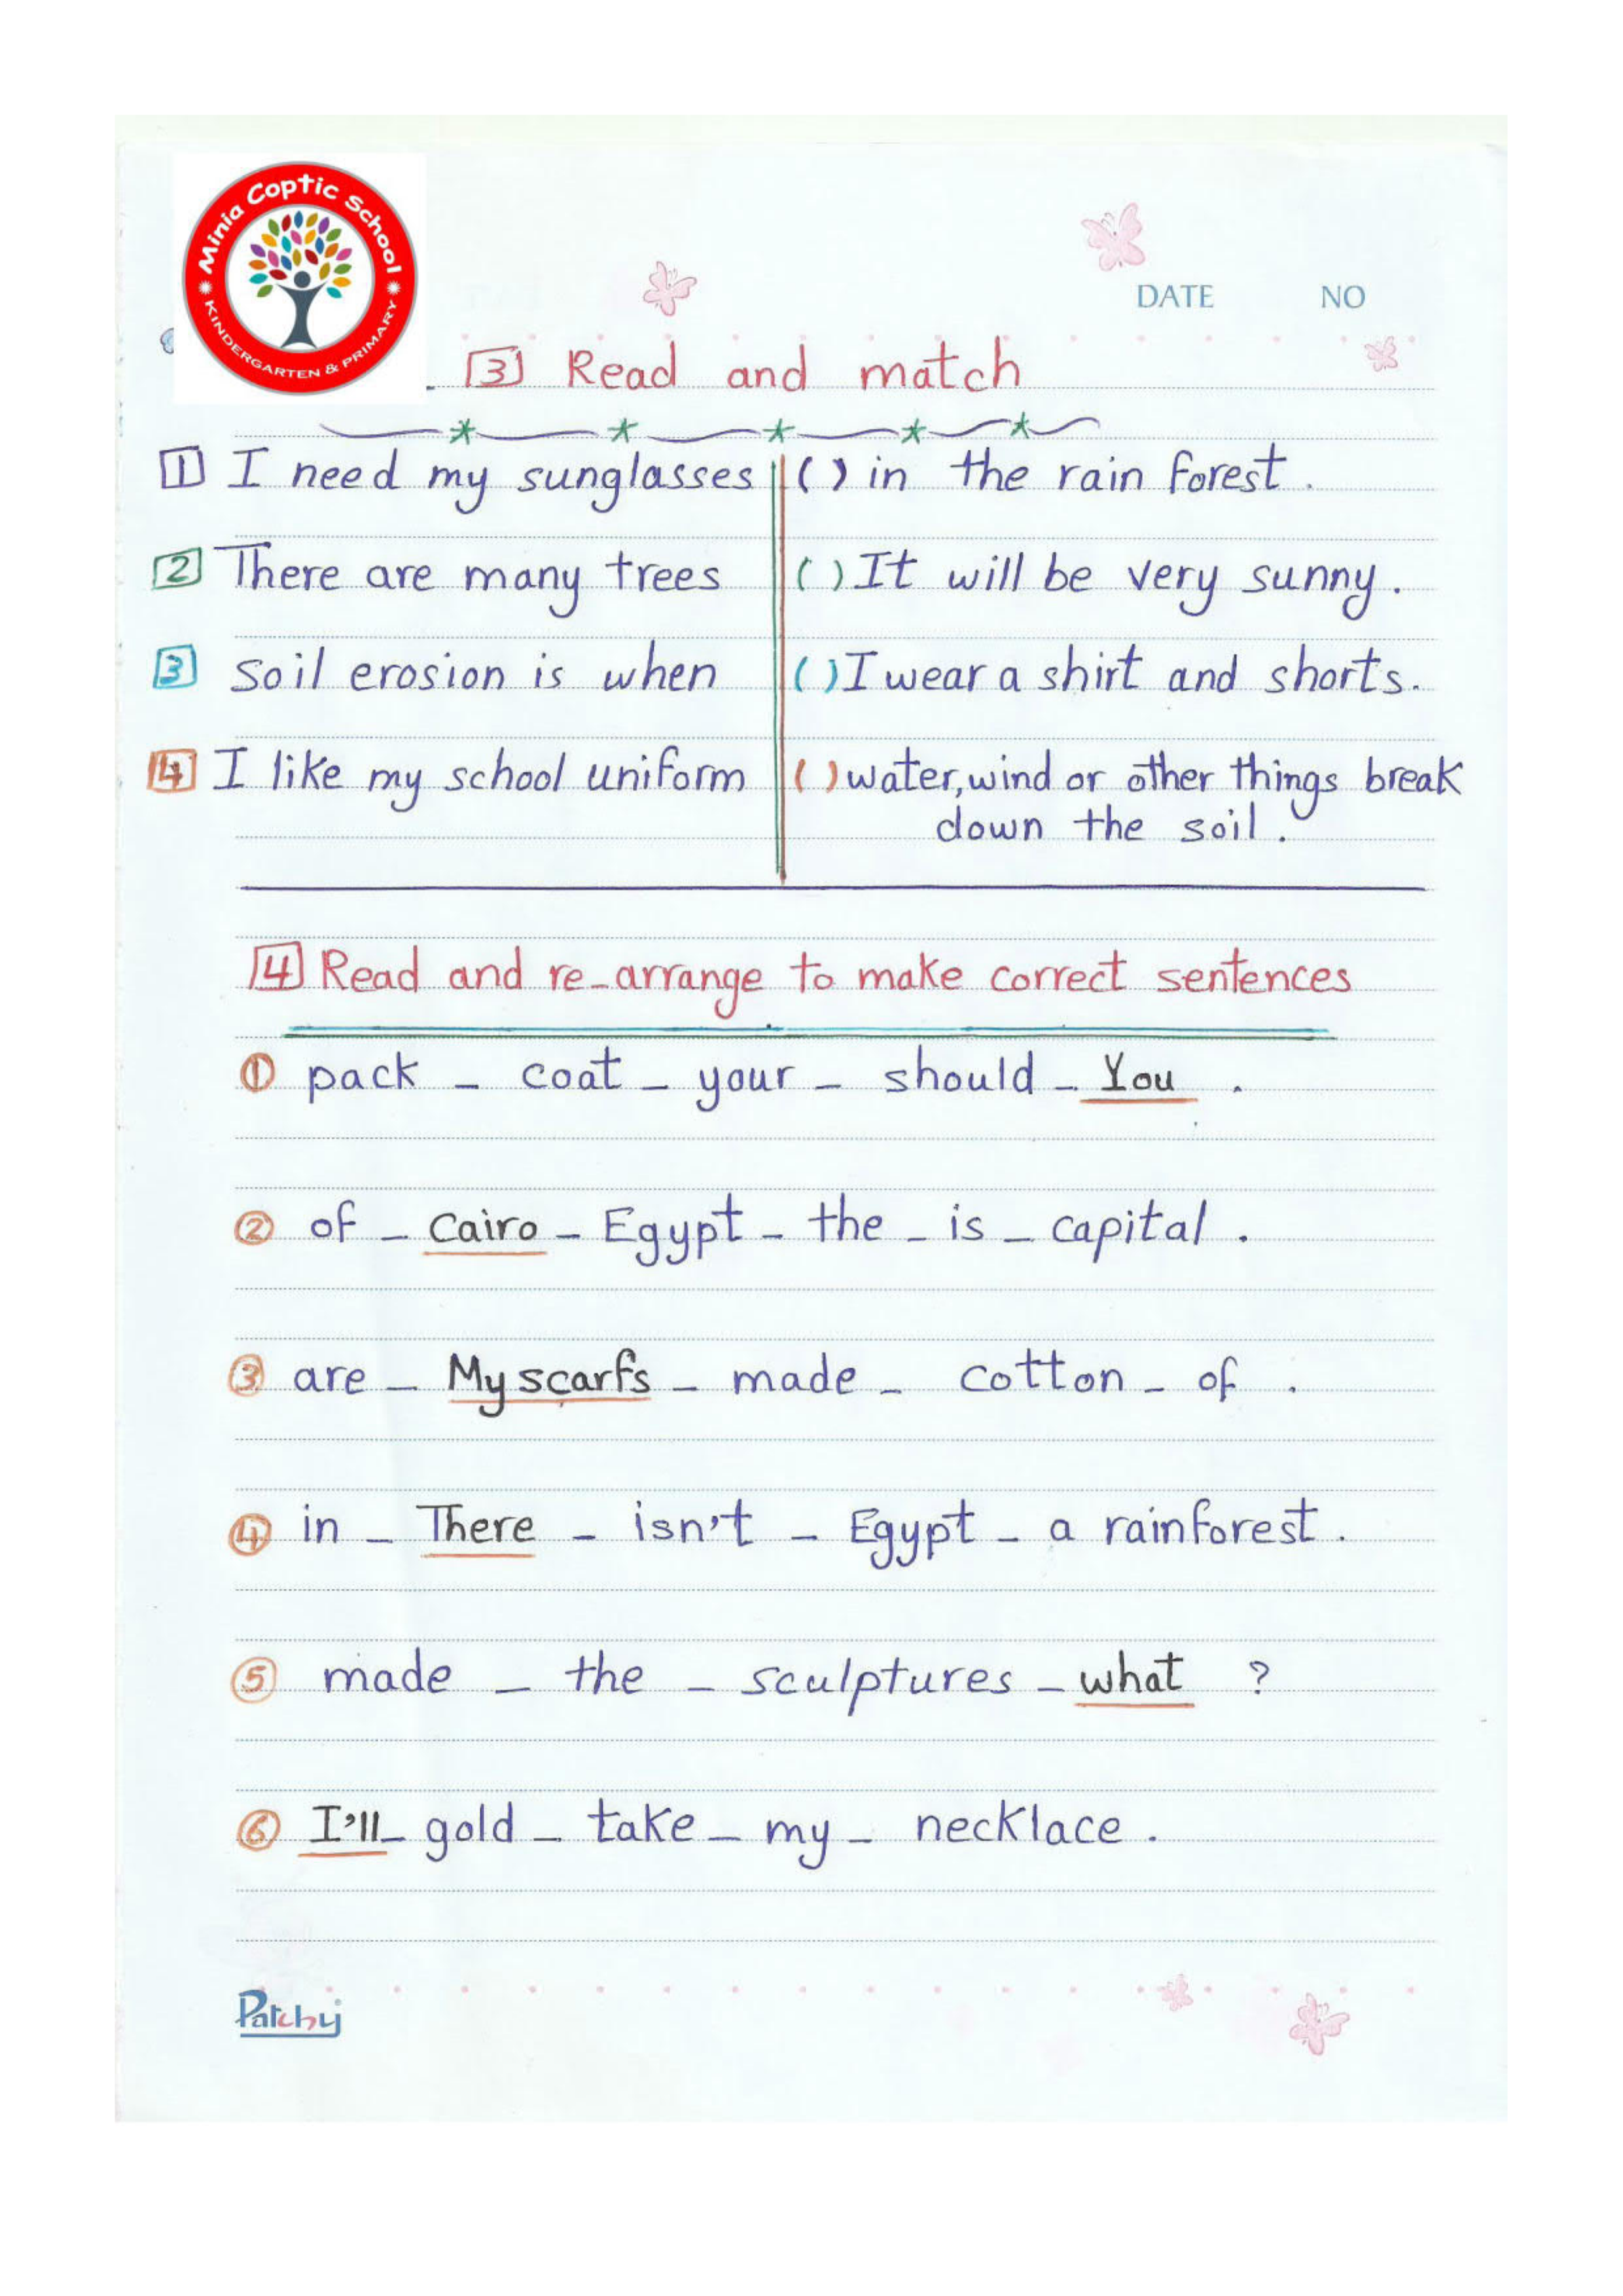 Minia Coptic School
KINDERGARTEN & PRIMARY
DATE NO
3 Read and match
1 I need my sunglasses ( ) in the rain forest.
2 There are many trees ( ) It will be very sunny.
3 soil erosion is when ( ) I wear a shirt and shorts.
4 I like my school uniform ( ) water, wind or other things break
down the soil.
4 Read and re-arrange to make correct sentences
1 pack - coat - your - should - You .
2 of - Cairo - Egypt - the - is - capital .
3 are - My scarfs - made - cotton - of .
4 in - There - isn't - Egypt - a rainforest .
5 made - the - sculptures - what ?
6 I'll - gold - take - my - necklace .
Patchy